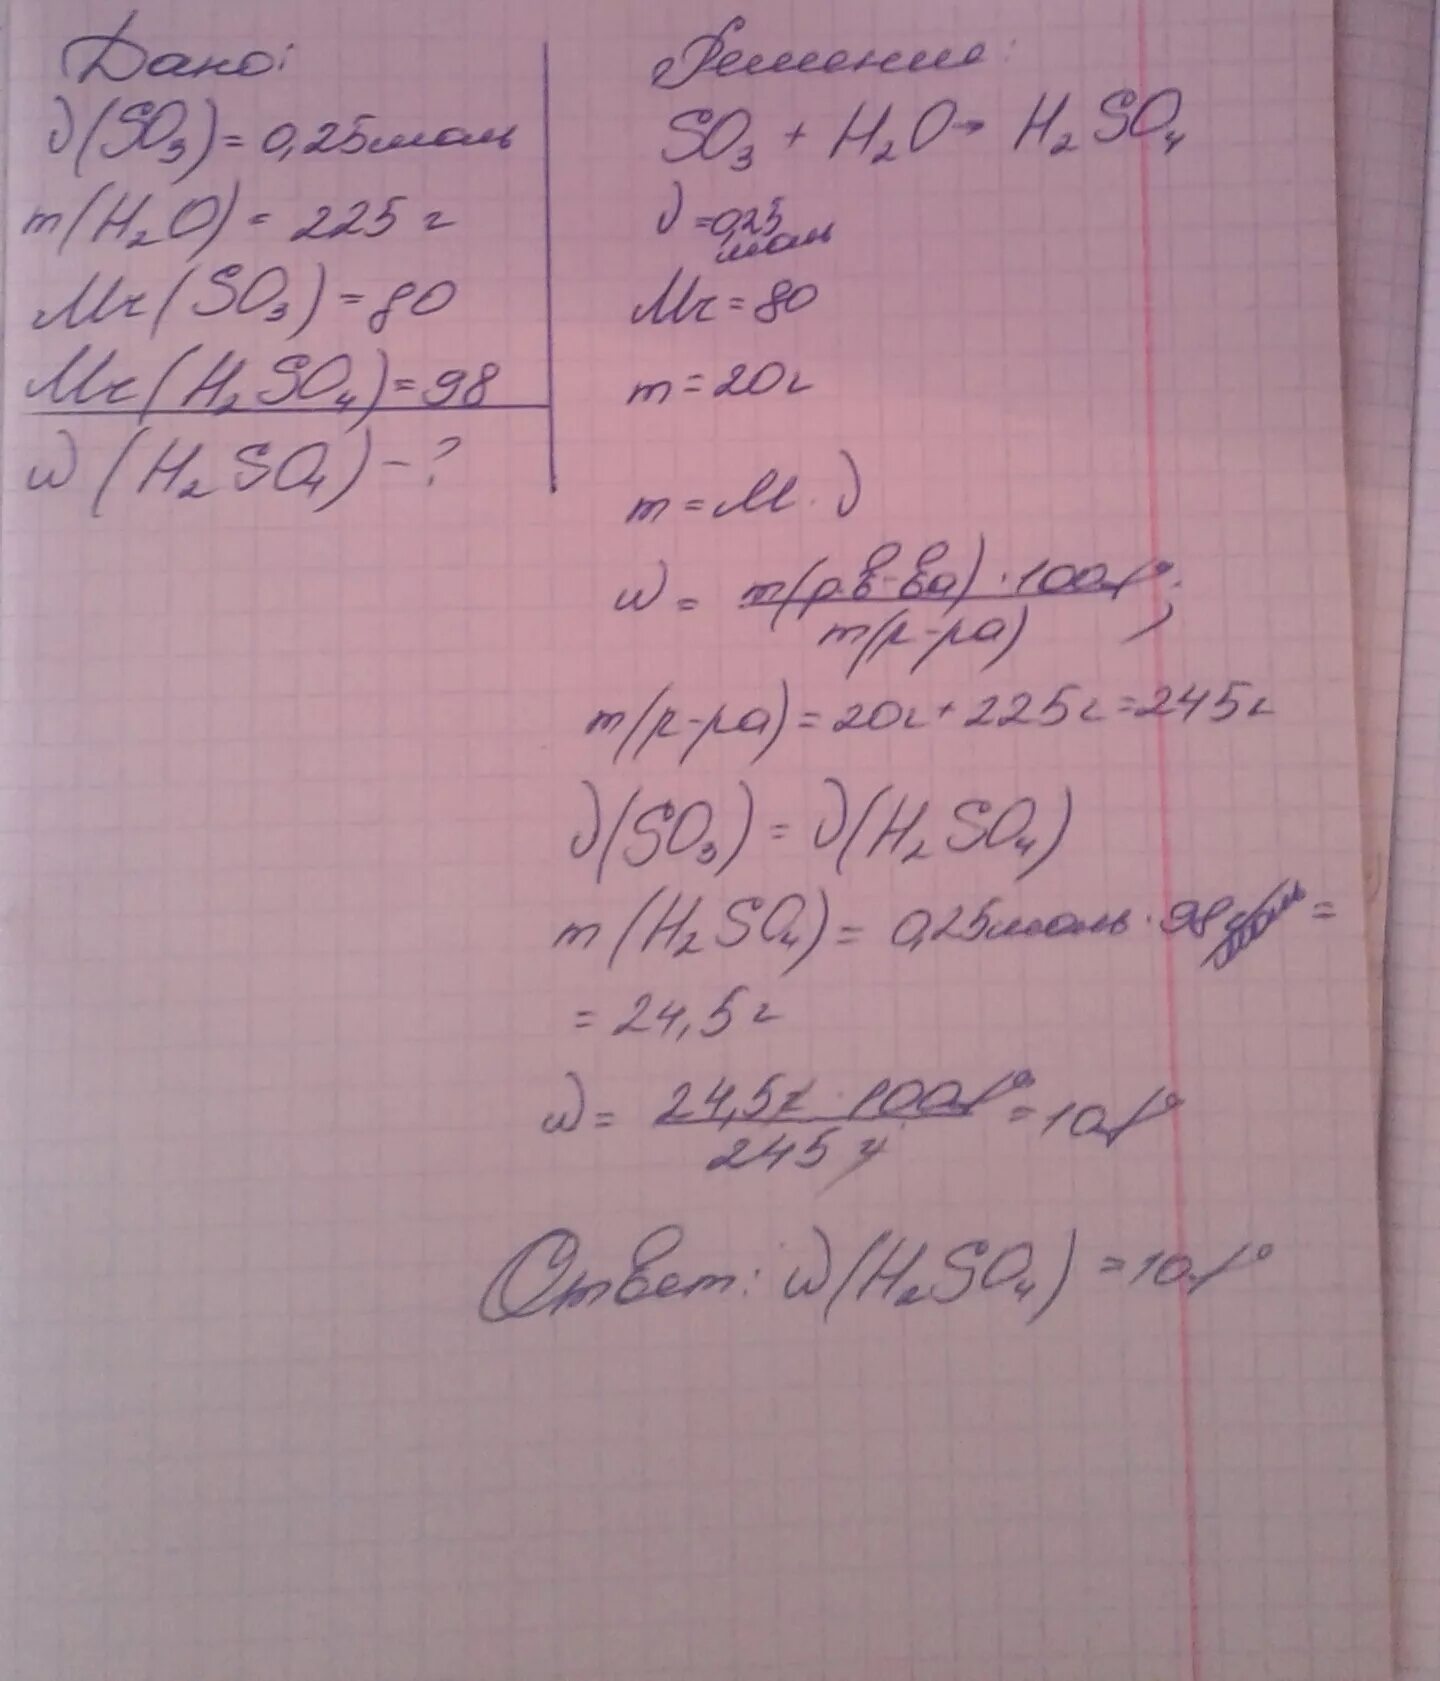 Дано:
ν(SO₃) = 0,25моль
m(H₂O) = 225 г
Mr(SO₃) = 80
Mr(H₂SO₄) = 98
ω(H₂SO₄) - ?
Решение:
SO₃ + H₂O → H₂SO₄
ν = 0,25
моль
Mr = 80
m = 20г
m = M · ν
ω = m(р.в-ва) · 100% ;
m(р-ра)
m(р-ра) = 20г + 225г = 245г
ν(SO₃) = ν(H₂SO₄)
m(H₂SO₄) = 0,25моль · 98 =
= 24,5г
ω = 24,5г · 100% = 10%
245 г
Ответ: ω(H₂SO₄) = 10%